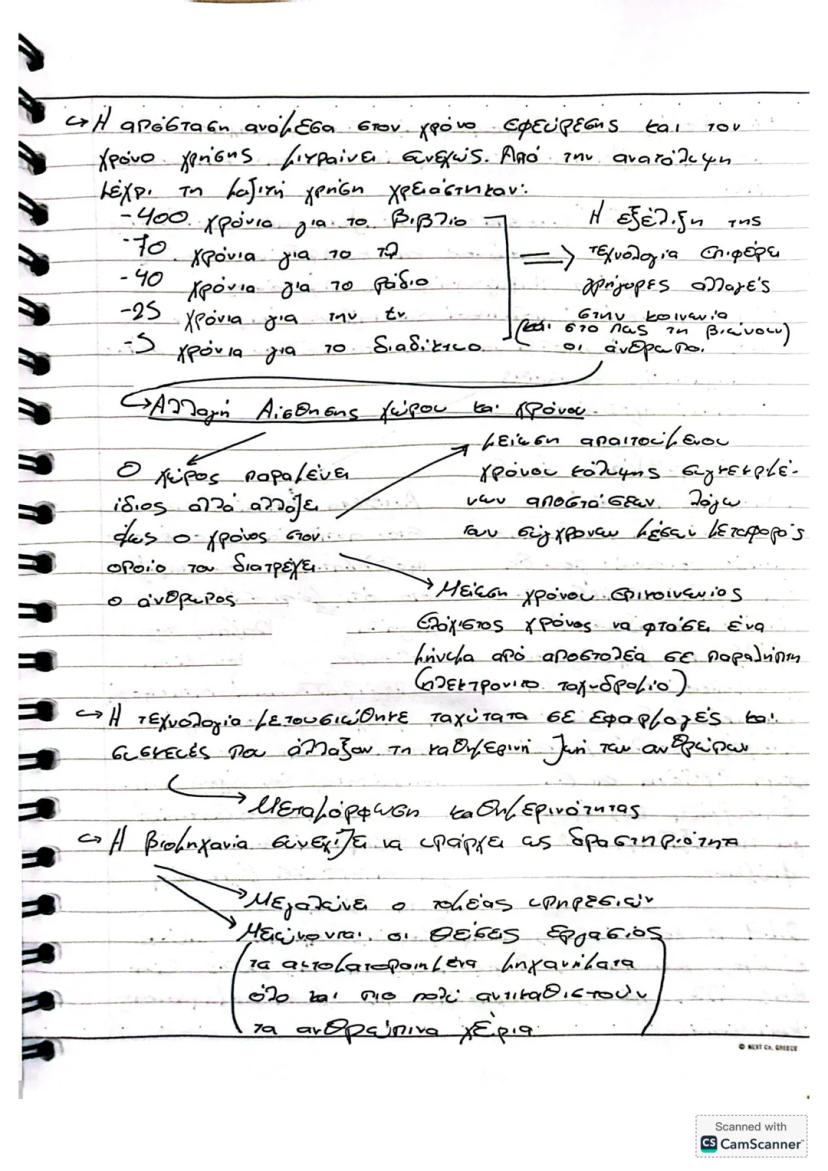 Η απόσταση ανάμεσα στον χρόνο εφεύρεσης και του
χρόνο χρήσης μικραίνει συνεχώς. Από την ανακάλυψη
μέχρι τη μαζική χρήση χρειάστηκαν:
-400 χρόνια για το βιβλίο
-70 χρόνια για το τηλ
-40 χρόνια για το ράδιο
-25 χρόνια για την tv
-5 χρόνια για το διαδίκτυο
Η εξέλιξη της
τεχνολογία επιφέρει
γρήγορες αλλαγές
στην κοινωνία
(και στο πως τη βιώνουν)
οι άνθρωποι
Αλλαγή Αίσθησης χώρου και χρόνου
Ο χώρος παραμένει
ίδιος αλλά αλλάζει
όμως ο χρόνος στον
οποίο τον διατρέχει
ο άνθρωπος
Μείωση απαιτούμενου
χρόνου κάλυψης συγκεκριμέ-
νων αποστάσεων λόγω
των σύγχρονων μέσων μεταφοράς
Μείωση χρόνου επικοινωνίας
Ελάχιστος χρόνος να φτάσει ένα
μήνυμα από αποστολέα σε παραλήπτη
(ηλεκτρονικο ταχυδρομίο)
Η τεχνολογία μετουσιώθηκε ταχύτατα σε εφαρμογές και
συσκευές που άλλαξαν τη καθημερινή ζωή των ανθρώπων
Μεταμόρφωση καθημερινότητας
Η βιομηχανία συνεχίζει να υπάρχει ως δραστηριότητα
Μεγαλώνει ο τομέας υπηρεσιών
Μειώνονται οι θέσεις εργασίας
(τα αυτοματοποιημένα μηχανήματα
όλο και πιο πολύ αντικαθιστούν
τα ανθρώπινα χέρια)
© NEXT Co. GREECE
Scanned with
CS CamScanner